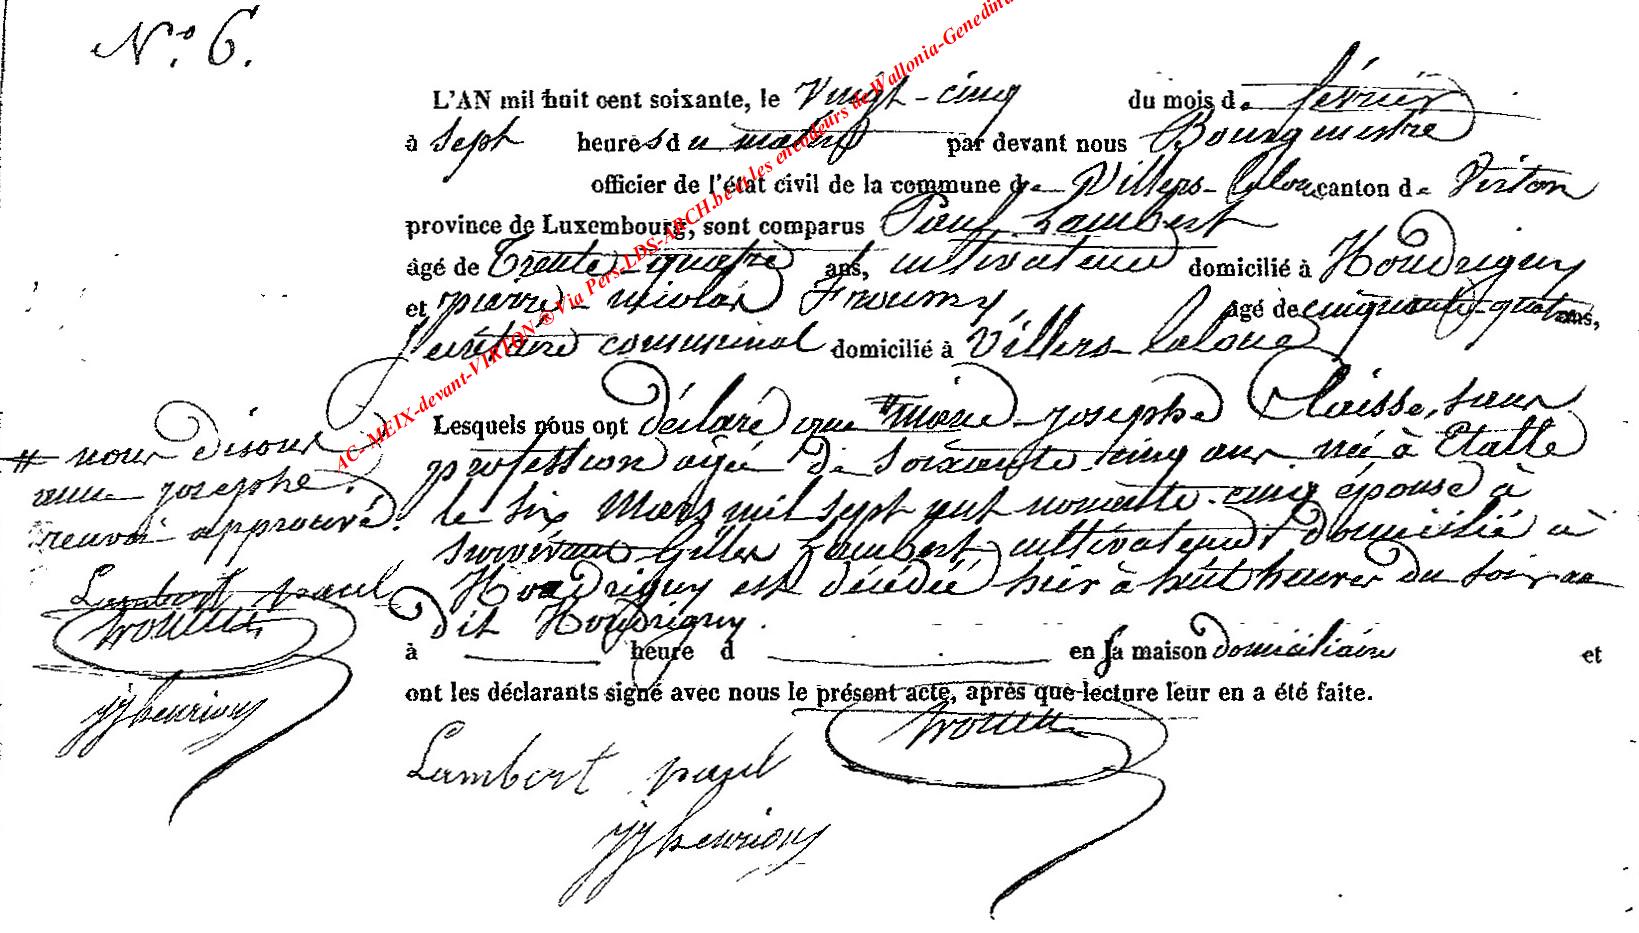 N.º 6.
L'AN mil huit cent soixante, le Vingt-cinq du mois de février
à sept heures du matin par devant nous Bourgmestre
officier de l'état civil de la commune de Villers-laloue canton de Virton
province de Luxembourg, sont comparus Paul Lambert
âgé de Trente-quatre ans, cultivateur domicilié à Houdrigny
et pierre-nicolas âgé de cinquante-quatre ans,
secrétaire communal domicilié à Villers-laloue
Lesquels nous ont déclaré que # marie-josephe Claisse, sans
profession agée de soixante-cinq ans née à Etalle
le six Mars mil sept cent nonante-cinq épouse à
survivant Gilles Lambert cultivateur domicilié à
Houdrigny est décédée hier à huit heures du soir au
dit Houdrigny.
à heure d en sa maison domiciliaire et
ont les déclarants signé avec nous le présent acte, après que lecture leur en a été faite.
Lambert paul
jjhenrion
# nous disons
anne josephe.
renvoi approuvé.
Lambert paul
jjhenrion
AC-MEIX-devant-VIRTON ® Via Pers-LDS-ARCH.be et les encodeurs de Wallonia-Genedina